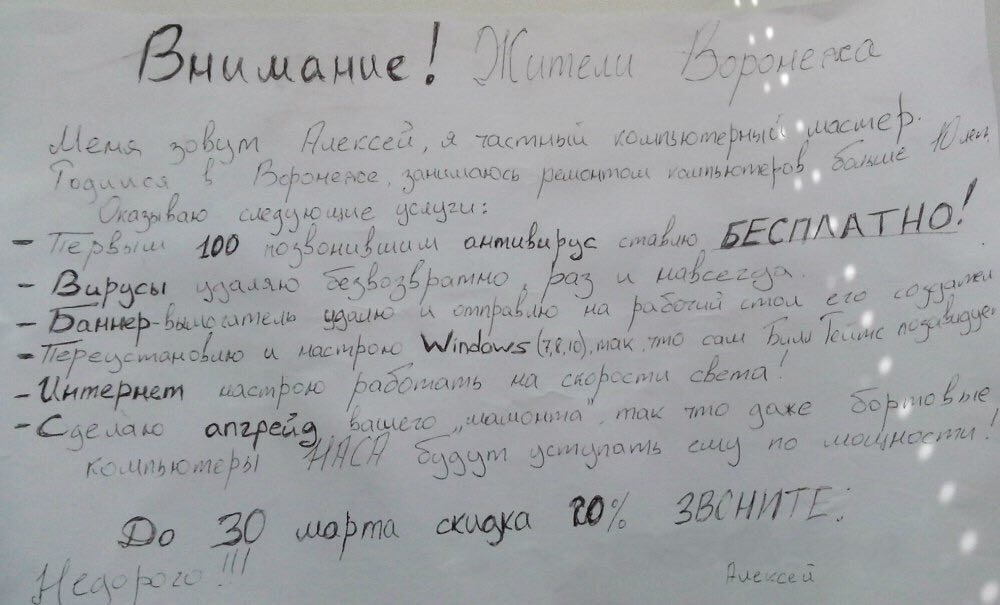 Внимание! Жители Воронежа
Меня зовут Алексей, я частный компьютерный мастер.
Родился в Воронеже, занимаюсь ремонтом компьютеров больше 10 лет.
Оказываю следующие услуги:
- Первым 100 позвонившим антивирус ставлю БЕСПЛАТНО!
- Вирусы удаляю безвозвратно, раз и навсегда.
- Баннер-вымогатель удалю и отправлю на рабочий стол его создателю
- Переустановлю и настрою Windows (7,8,10), так, что сам Билл Гейтс позавидует
- Интернет настрою работать на скорости света!
- Сделаю апгрейд вашего „мамонта", так что даже бортовые
компьютеры НАСА будут уступать ему по мощности!
До 30 марта скидка 20% ЗВОНИТЕ:
Недорого!!!
Алексей